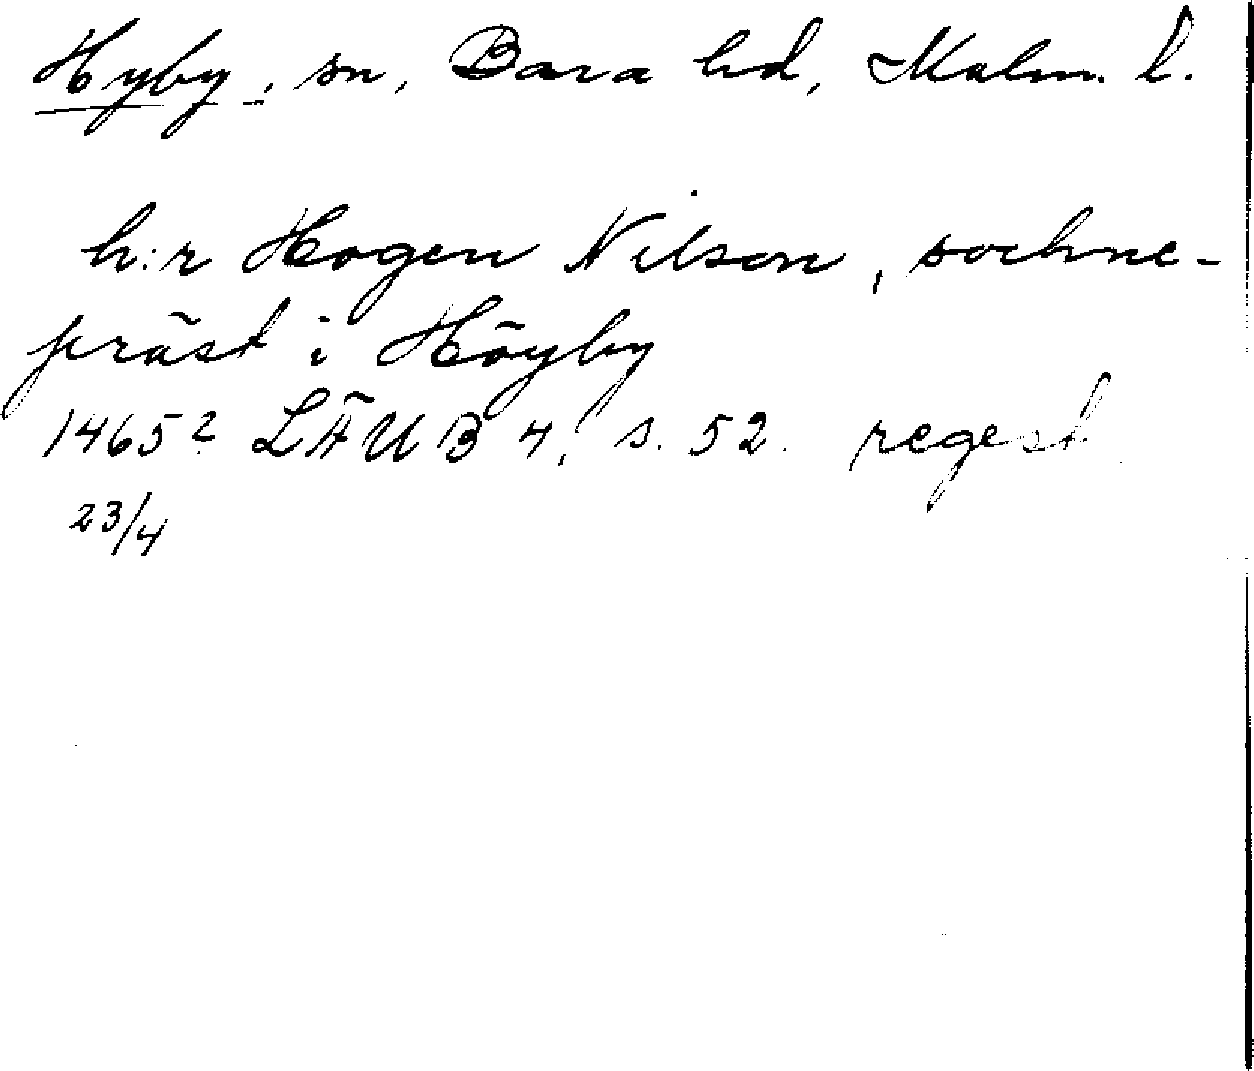 Hyby, sn, Bara hd, Malm. l.
h:r Hogen Nilson, sochne-
präst i Höyby
1465? LÄUB 4, s. 52. regest
23/4